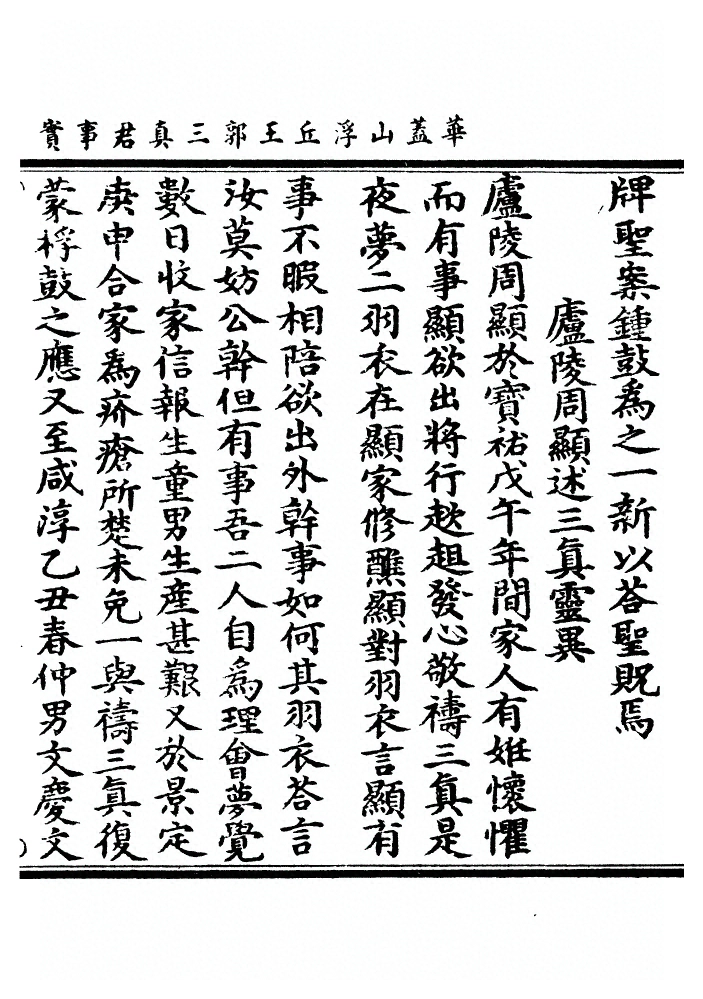 華蓋山浮丘王郭三真君事實
牌聖案鍾鼓爲之一新以荅聖貺焉
廬陵周顯述三眞靈異
廬陵周顯於寶祐戊午年間家人有娠懷懼
而有事顯欲出將行趑趄發心敬禱三眞是
夜夢二羽衣在顯家修醮顯對羽衣言顯有
事不暇相陪欲出外幹事如何其羽衣荅言
汝莫妨公幹但有事吾二人自爲理會夢覺
數日收家信報生童男生産甚艱又於景定
庚申合家爲疥瘡所楚未免一與禱三眞復
蒙桴鼓之應又至咸淳乙丑春仲男文慶文